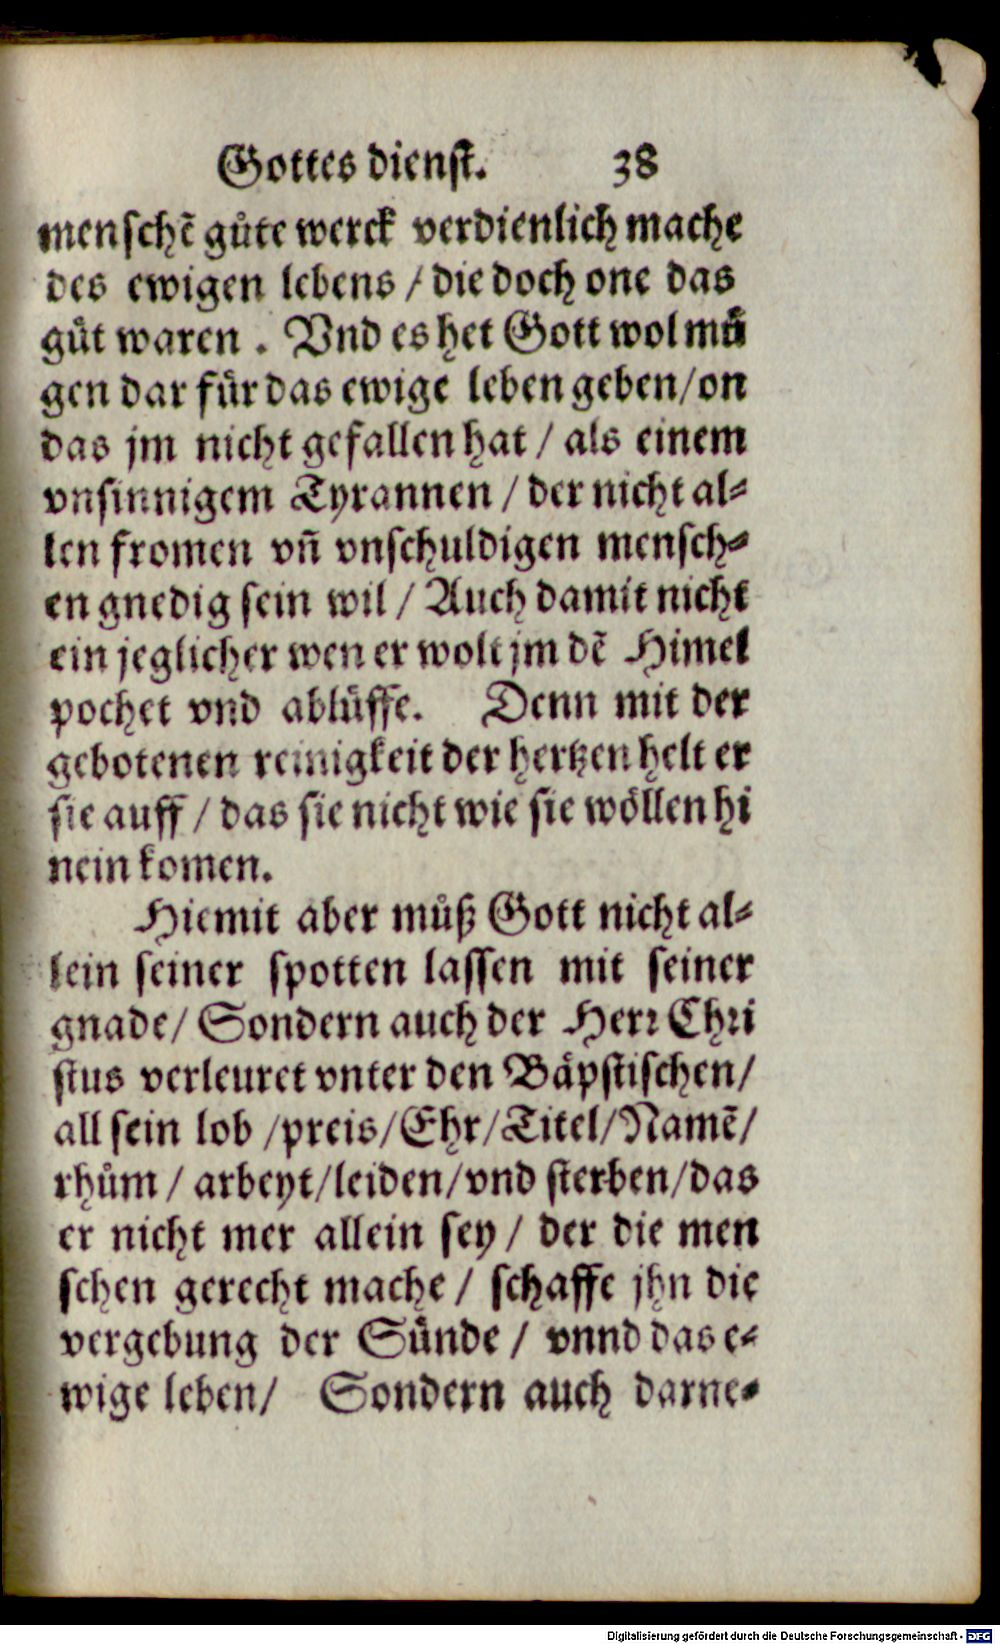 Gottes dienst. 38
menschē gůte werck verdienlich mache
des ewigen lebens / die doch one das
gůt waren . Vnd es het Gott wol mů
gen dar für das ewige leben geben/on
das jm nicht gefallen hat / als einem
vnsinnigem Tyrannen / der nicht al⸗
len fromen vñ vnschuldigen mensch⸗
en gnedig sein wil / Auch damit nicht
ein jeglicher wen er wolt jm dē Himel
pochet vnd ablüffe. Denn mit der
gebotenen reinigkeit der hertzen helt er
sie auff / das sie nicht wie sie wöllen hi
nein komen.
Hiemit aber můß Gott nicht al⸗
lein seiner spotten lassen mit seiner
gnade/ Sondern auch der Herr Chri
stus verleuret vnter den Bäpstischen/
all sein lob /preis/Ehr/Titel/Namē/
rhům / arbeyt/leiden/vnd sterben/das
er nicht mer allein sey / der die men
schen gerecht mache / schaffe jhn die
vergebung der Sünde / vnnd das e⸗
wige leben/ Sondern auch darne⸗
Digitalisierung gefördert durch die Deutsche Forschungsgemeinschaft - DFG